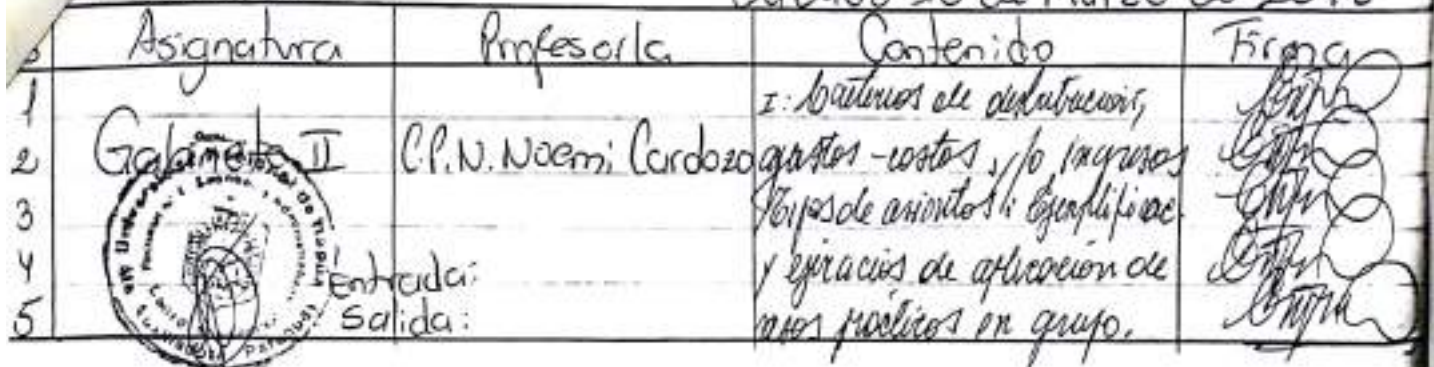 de Marzo de
Asignatura Profesor/a Contenido Firma
1 I: Criterios de distribución,
2 Gabinete II C.P.N. Noemi Cardozo gastos - costos, y/o ingresos
3 Tipos de asientos: Ejemplificac.
4 Entrada: y ejercicios de aplicación de
5 Salida: casos prácticos en grupo.